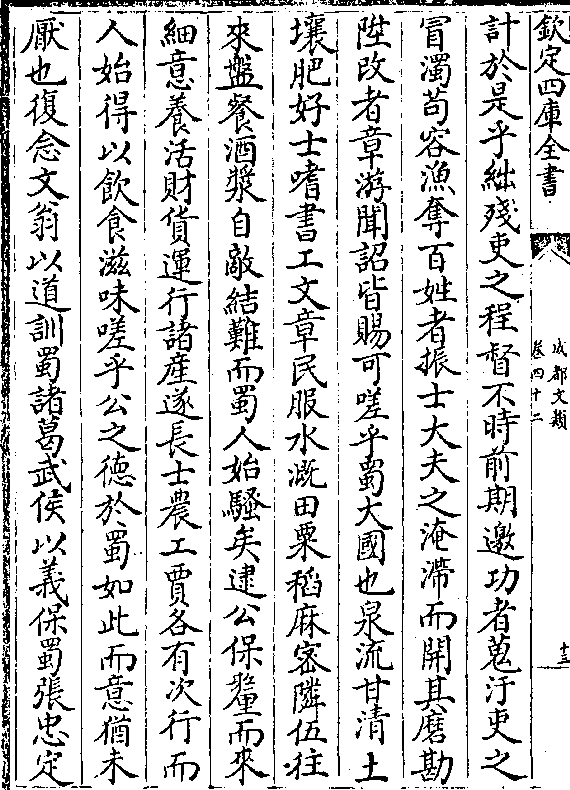 欽定四庫全書
成都文類
卷四十二
十三
計於是乎絀殘吏之程督不時前期邀功者蒐汙吏之
冒濁苟容漁奪百姓者振士大夫之淹滯而開其磨勘
陞改者章游聞詔皆賜可嗟乎蜀大國也泉流甘清土
壤肥好士嗜書工文章民服水溉田粟稻麻密隣伍往
來盤餐酒漿自敵結難而蜀人始騷矣逮公保釐而來
細意養活財貨運行諸産遂長士農工賈各有次行而
人始得以飲食滋味嗟乎公之德於蜀如此而意猶未
厭也復念文翁以道訓蜀諸葛武侯以義保蜀張忠定